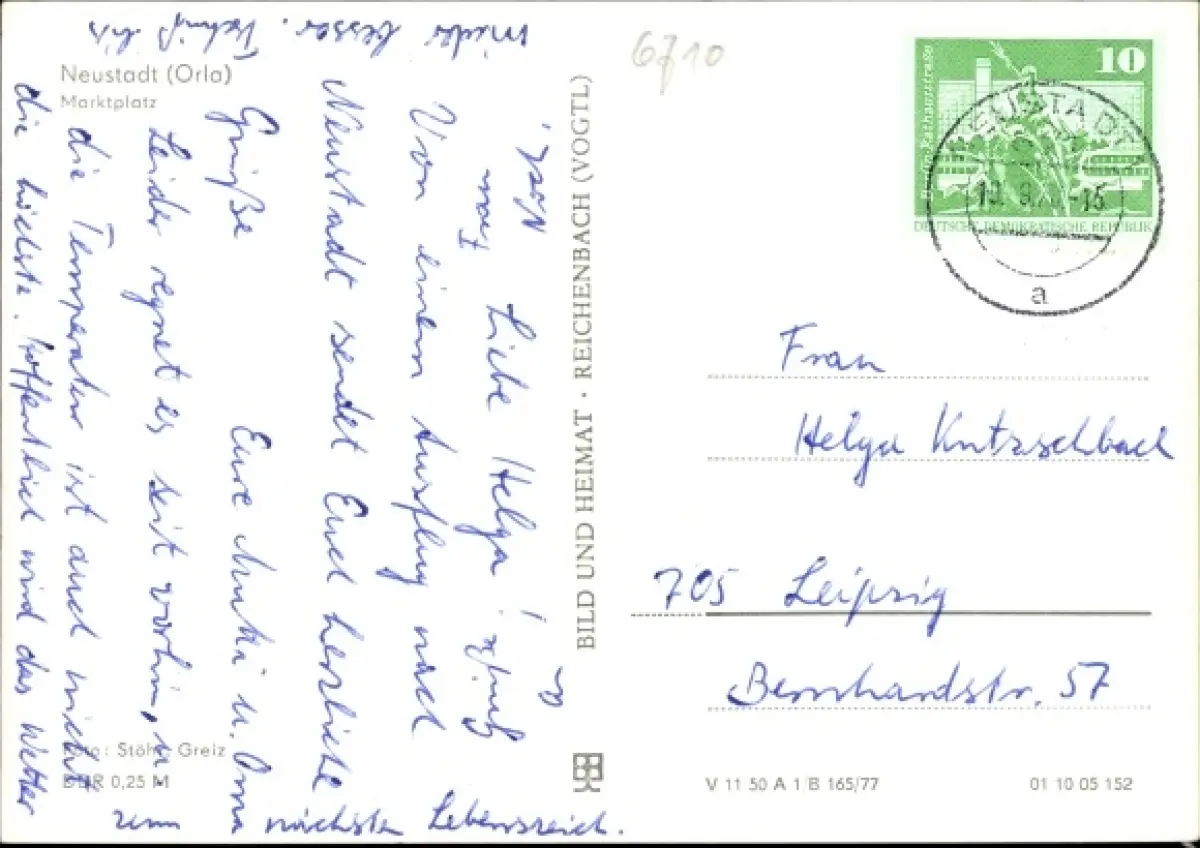 Neustadt (Orla)
Marktplatz
6710
10
Berlin, Rathausstraße
DEUTSCHE DEMOKRATISCHE REPUBLIK
NEUSTADT
a
BILD UND HEIMAT · REICHENBACH (VOGTL)
Liebe Helga! u.
Von einem Ausflug nach
Neustadt sendet Euch herzliche
Grüße Eure u. Oma
Leider regnet es seit vorhin, u.
die Temperatur ist auch nicht
die höchste. Hoffentlich wird das Wetter
wieder besser. Tschüß bis
zum nächsten
Frau
Helga Kutzschbach
705 Leipzig
Bernhardstr. 57
Foto: Stöhr, Greiz
DDR 0,25 M
V 11 50 A 1 B 165/77
01 10 05 152